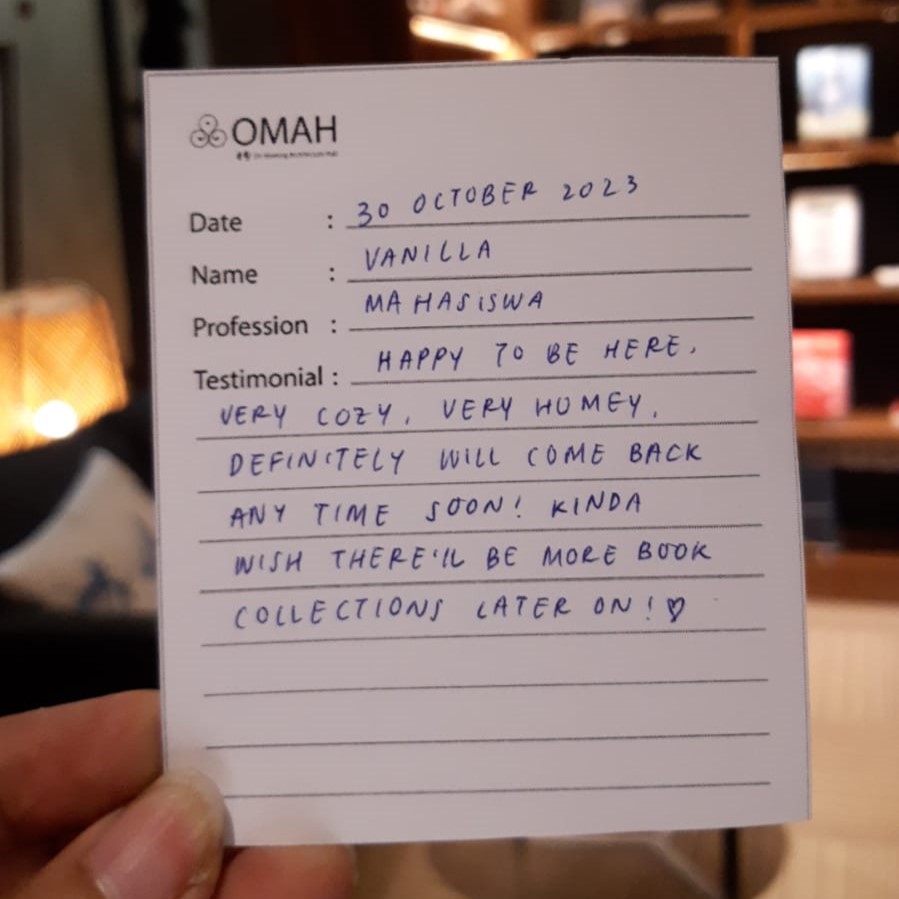 OMAH
Date : 30 OCTOBER 2023
Name : VANILLA
Profession : MAHASISWA
Testimonial : HAPPY TO BE HERE.
VERY COZY, VERY HOMEY,
DEFINITELY WILL COME BACK
ANY TIME SOON! KINDA
WISH THERE'LL BE MORE BOOK
COLLECTIONS LATER ON! ♡